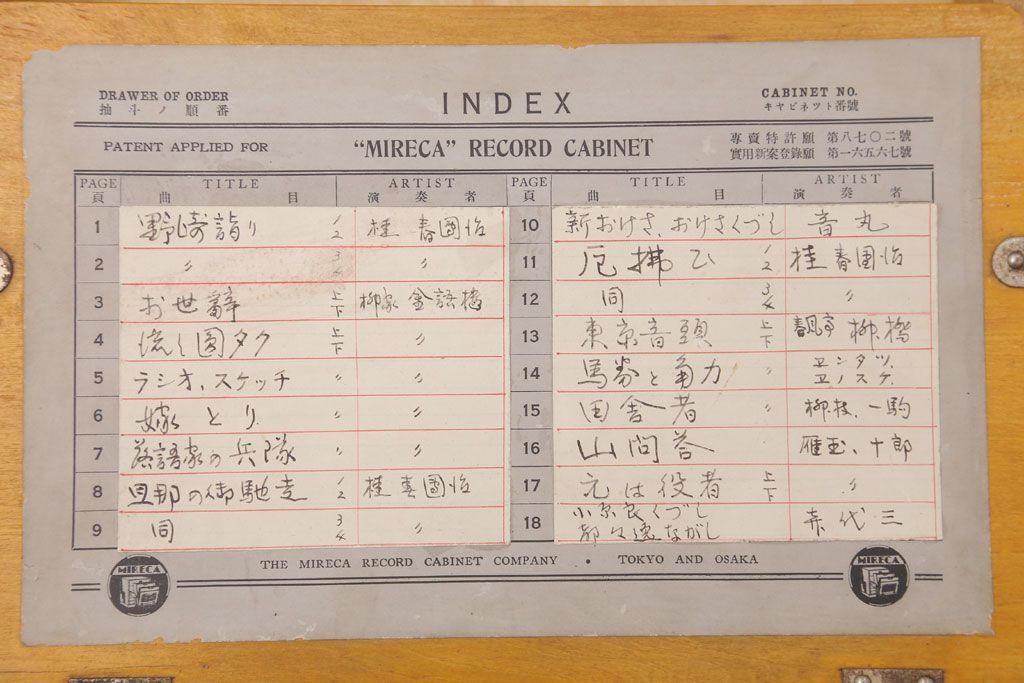 DRAWER OF ORDER
抽斗ノ順番
INDEX
CABINET NO.
キヤビネツト番號
PATENT APPLIED FOR
"MIRECA" RECORD CABINET
專賣特許願 第八七〇二號
實用新案登錄願 第一六五六七號
PAGE TITLE ARTIST PAGE TITLE ARTIST
頁 曲目 演奏者 頁 曲目 演奏者
1 野崎詣り 1/2 桂春團治
2 〃 3/4 〃
3 お世辞 上下 柳家金語樓
4 流し圓タク 上下 〃
5 ラジオ、スケッチ 〃 〃
6 嫁とり 〃 〃
7 落語家の兵隊 〃 〃
8 旦那の御馳走 1/2 桂春團治
9 同 3/4 〃
10 新おけさ、おけさくづし 音丸
11 厄拂ひ 1/2 桂春團治
12 同 3/4 〃
13 東京音頭 上下 春風亭柳橋
14 馬券と角力 〃 エンタツ、エノスケ
15 田舎者 〃 柳枝、一駒
16 山問答 雁玉、十郎
17 元は役者 上下 〃
18 小原良くづし 都々逸ながし 代三
THE MIRECA RECORD CABINET COMPANY • TOKYO AND OSAKA
MIRECA
MIRECA